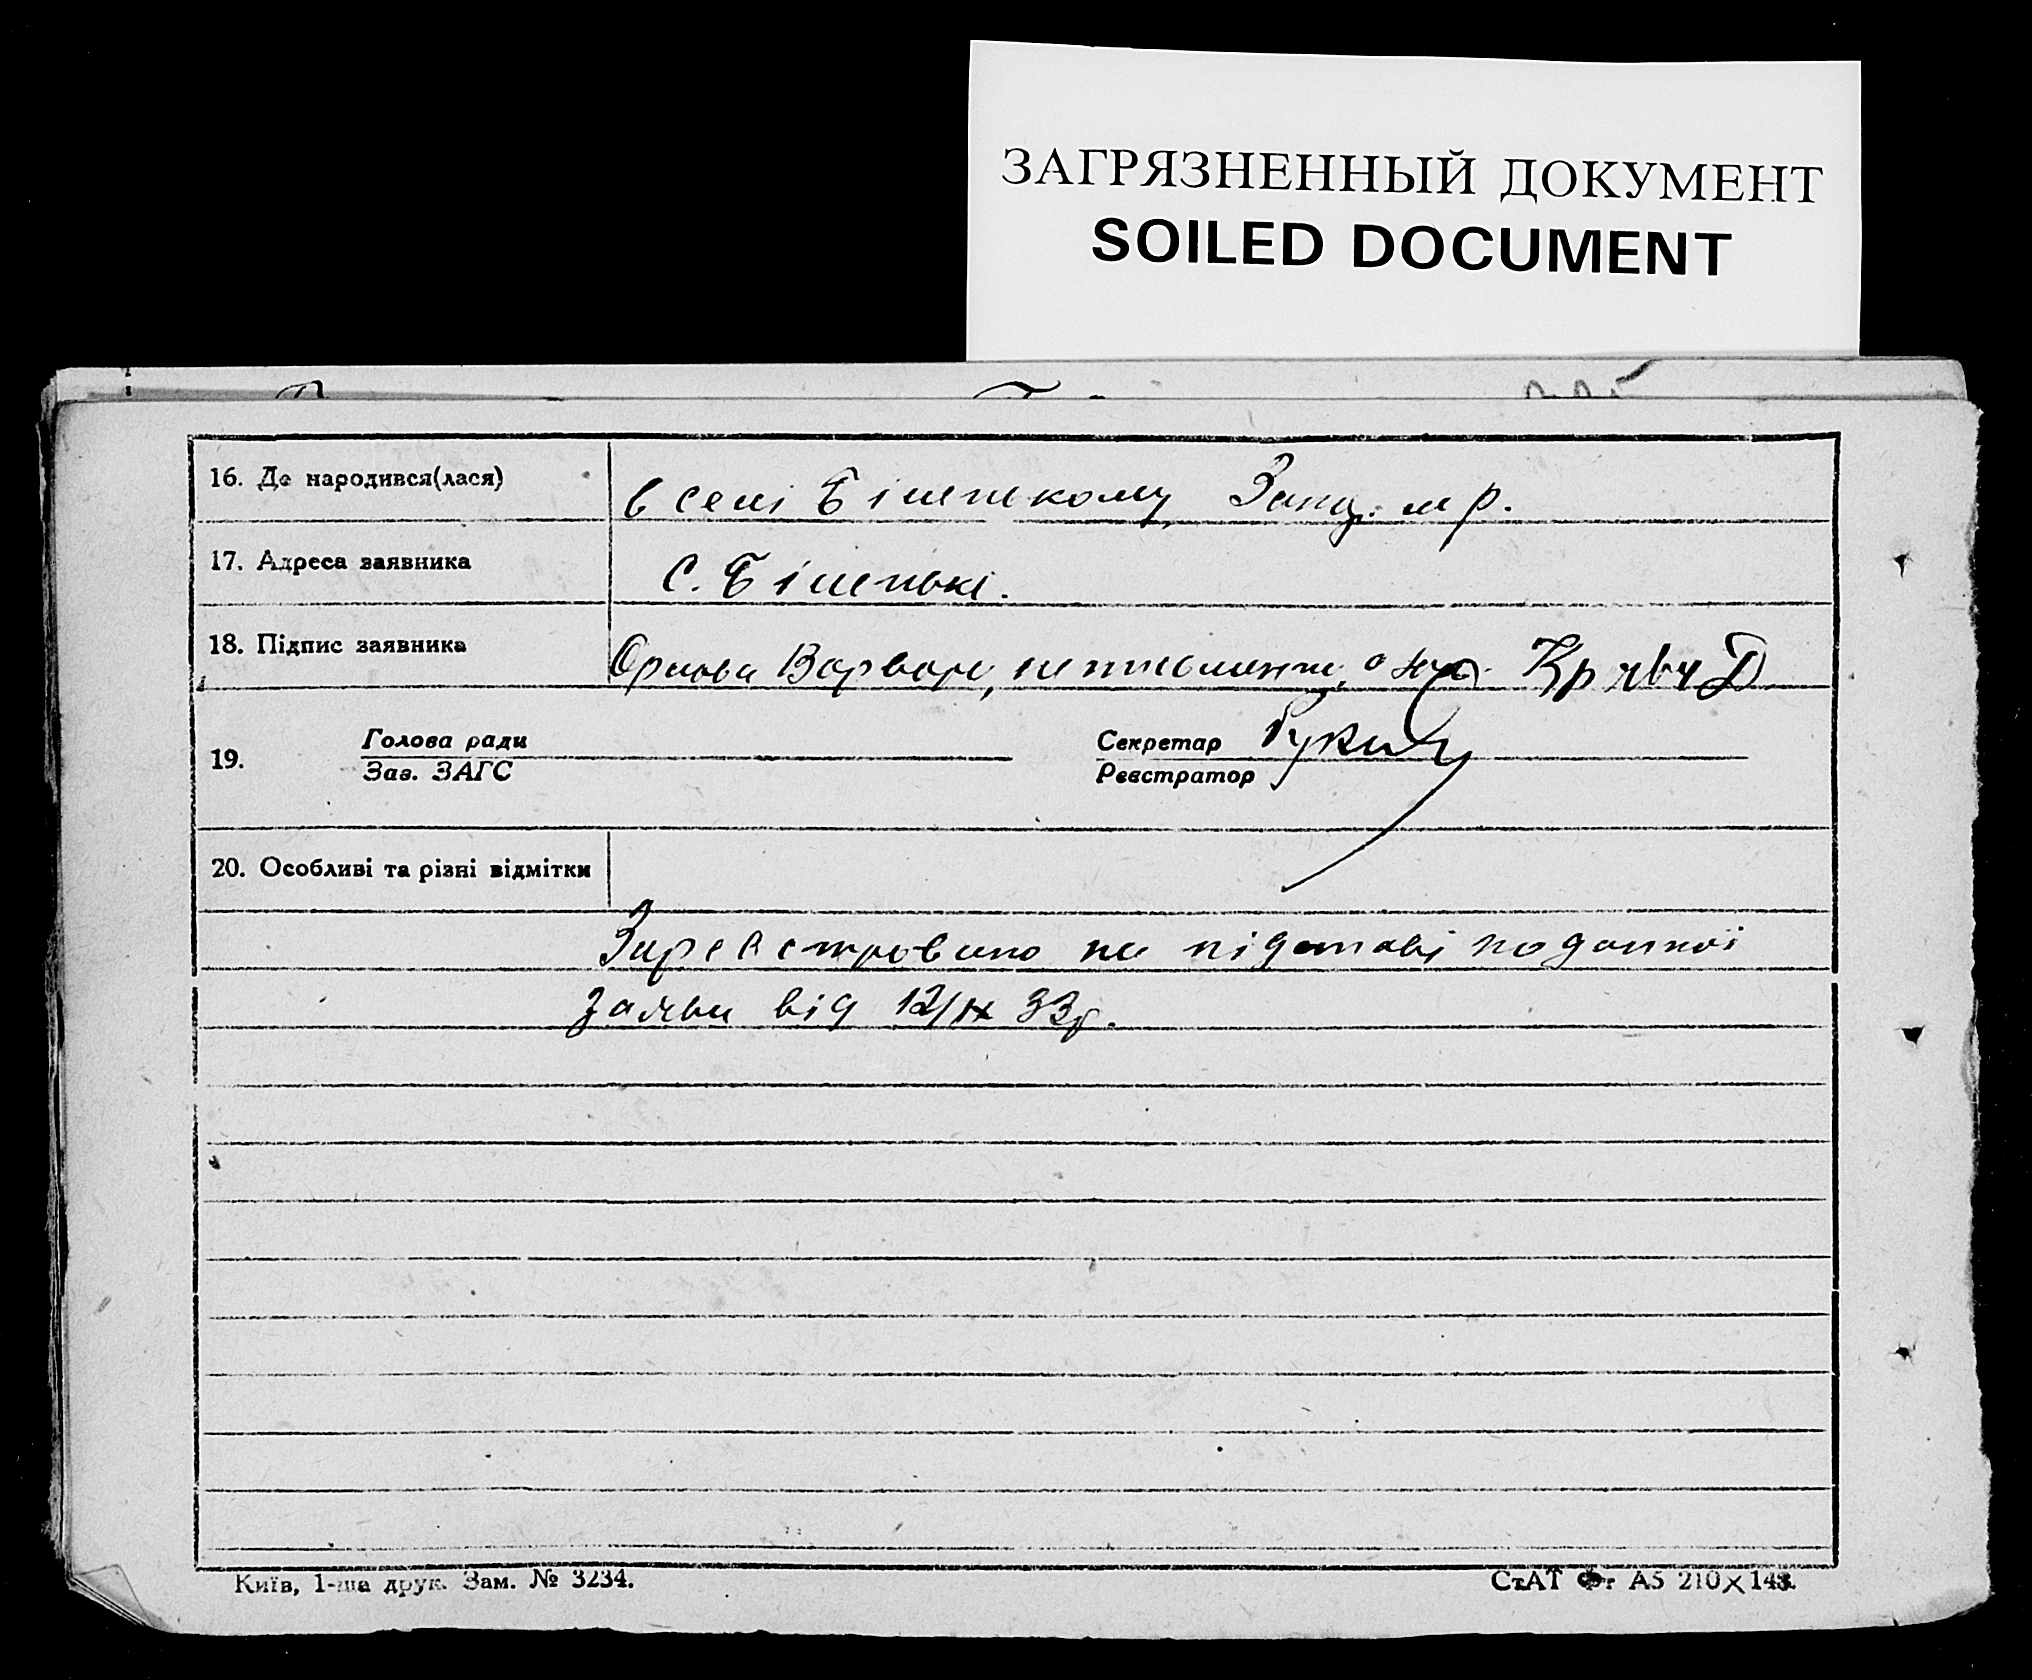 ЗАГРЯЗНЕННЫЙ ДОКУМЕНТ
SOILED DOCUMENT
16. Де народився(лася)
в селі Біленькому Запц. м р.
17. Адреса заявника
С. Біленькі.
18. Підпис заявника
Орлова Варвара, неписьменна, а
19.
Голова ради
Зав. ЗАГС
Секретар
Реєстратор
20. Особливі та різні відмітки
Зареєстровано на підставі поданної
заяви від 12/IX 33р.
Київ, 1-ша друк. Зам. № 3234.
СтАТ Фт А5 210×148.